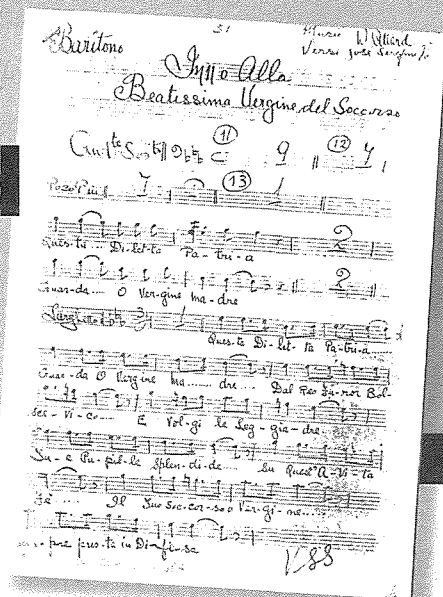 51
Baritono
Music W. 
Versi José
Inno Alla
Beatissima Vergine del Soccorso
11 9 12 7
Poco Più 7 13 1
Ques-ta... Di-let-ta Pa-tri-a 2
Guar-da... O Ver-gine ma-dre 2
Larghetto 3 1
Ques-ta Di-let-ta Pa-tri-a...
Guar-da O Vergine ma......dre.... Dal Reo Fu-ror Bel-
E Vol-gi le Leg-gia-dre
Su-e Pu-pil-le Splen-di-de.... Su Ques' A-vi-ta
Fe' Il Tuo Soc-cor-so o Ver-gi-ne......
pre pres-ta in Di-fe-sa
VSS